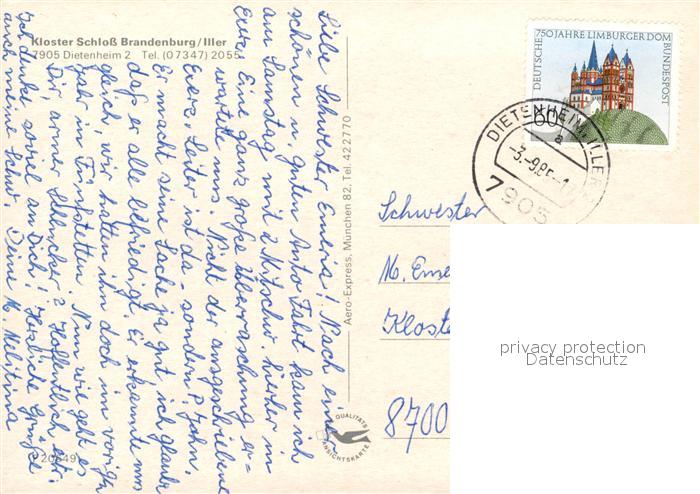 Kloster Schloß Brandenburg/Iller
7905 Dietenheim 2 Tel. (07347) 2055
Liebe Schwester Emeria! Nach einer
schönen, guten Auto Fahrt kam ich
am Samstag mit 2 Mitschw. hier in
Eine ganz große Überraschung er-
wartete uns. Nicht der ausgeschriebene
Exerz. Leiter ist da - sondern P. John.
Er macht seine Sache ja gut ich glaube
daß er alle befriedigt. Er erkannte uns
gleich, wir hatten ihn doch im vorigen
Jahr in Nun wie geht es
Dir, armer Hoffentlich
Ich denke soviel an Dich! Herzliche Grüße
auch meine Schw. Deine M. Melitine
Aero-Express, München 82, Tel. 422770
QUALITÄTS
ANSICHTSKARTE
DEUTSCHE BUNDESPOST
750 JAHRE LIMBURGER DOM
60
DIETENHEIM, ILLER
a
-3.-9.85-1
7905
Schwester
M. Eme
Kloste
8700
privacy protection
Datenschutz